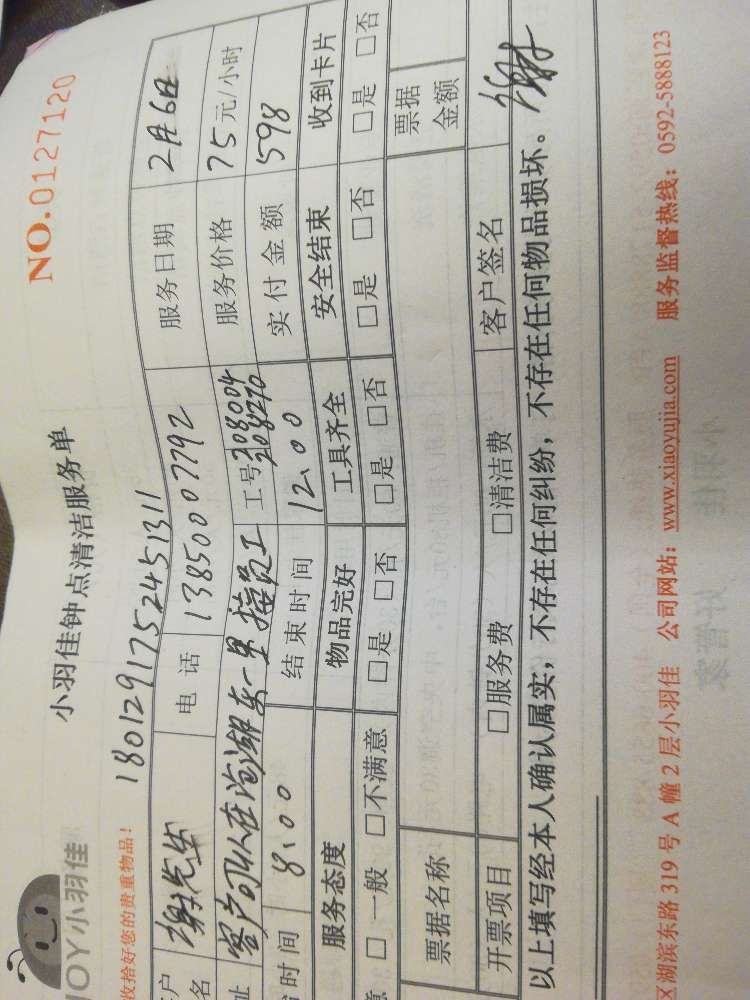 小羽佳钟点清洁服务单
NO.0127120
OY小羽佳
收拾好您的贵重物品!
180129175245131​1
户名 谢先生 电话 13850007792 服务日期 2月6日
址 客户可以在沧湖东一里接员工 工号 208004 208270 服务价格 75元/小时
时间 8:00 结束时间 12:00 实付金额 598
服务态度 物品完好 工具齐全 安全结束 收到卡片
意 □一般 □不满意 □是 □否 □是 □否 □是 □否 □是 □否
票据名称 票据金额
开票项目 □服务费 □清洁费 客户签名 谢
以上填写经本人确认属实，不存在任何纠纷，不存在任何物品损坏。
区湖滨东路319号A幢2层小羽佳 公司网站：www.xiaoyujia.com 服务监督热线：0592-5888123